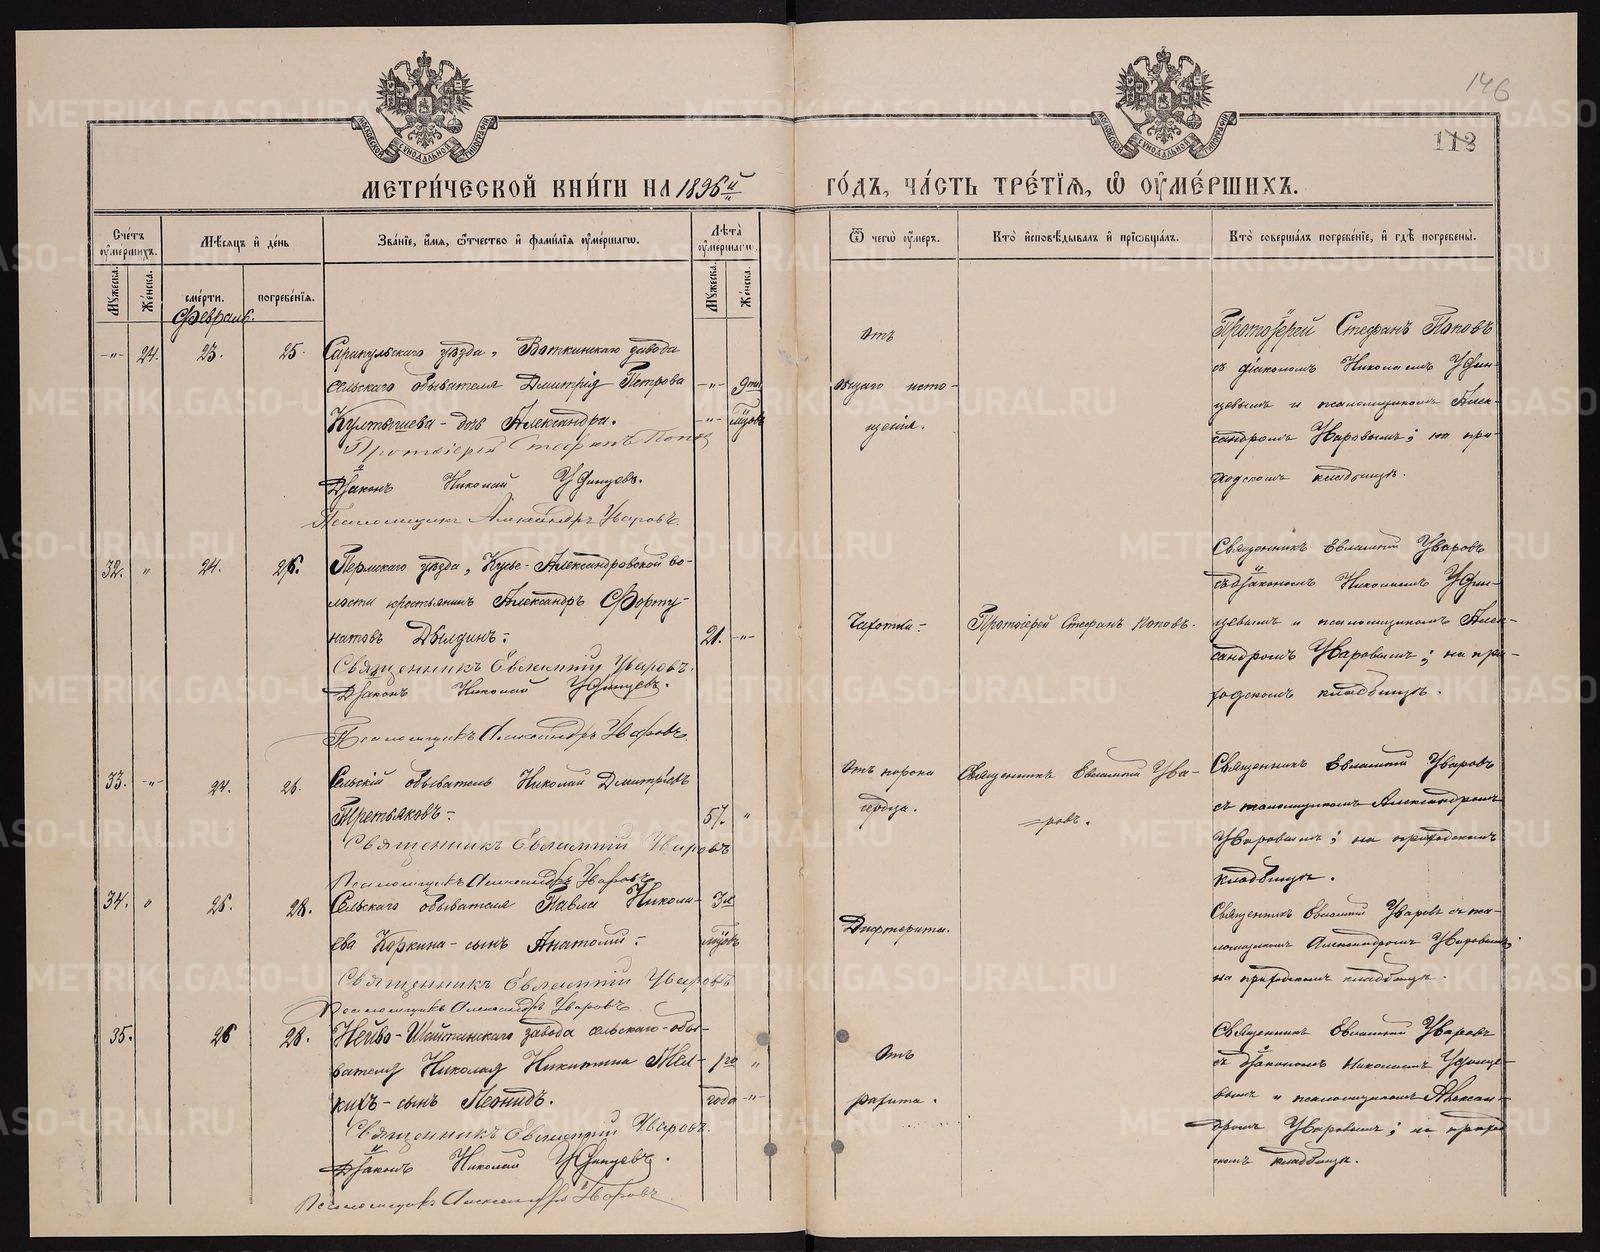 146
113
МОСКОВСКОЙ СѴНОДАЛЬНОЙ ТИПОГРАФІИ
МОСКОВСКОЙ СѴНОДАЛЬНОЙ ТИПОГРАФІИ
МЕТРИ́ЧЕСКОЙ КНИ́ГИ НА 1896й ГО́ДЪ, ЧА́СТЬ ТРЕ́ТІѦ, Ѡ ОУМЕ́РШИХЪ.
Сче́тъ оумéршихъ.
Мѣсяцъ и де́нь
Зва́нїе, и́мя, ѻ́тчество и фами́лїя оумéршагѡ.
Лѣта̀ оумéршагѡ.
Ѿ чегѡ̀ оу́меръ.
Кто̀ исповѣ́дывалъ и прїѡбща́лъ.
Кто̀ соверша́лъ погребе́нїе, и гдѣ̀ погребены̀.
Мꙋжеска. Же́нска.
сме́рти. погребе́нїя.
Мꙋжеска. Же́нска.
Февраль.
-"- 24. 23. 25.
Сарапульскаго уѣзда, Воткинскаго завода
сельскаго обывателя Димитрія Петрова
Култышева - дочь Александра.
Протоіерей Стефанъ Поповъ
Діаконъ Николай Удинцевъ.
Псаломщикъ Александръ Уваровъ.
-"- 9ти
-"- мѣсяц.
Отъ
общаго исто-
щенія.
Протоіерей Стефанъ Поповъ
съ діакономъ Николаемъ Удин-
цевымъ и псаломщикомъ Алек-
сандромъ Уваровымъ; на при-
ходскомъ кладбищѣ.
32. " 24. 26.
Пермскаго уѣзда, Кусье-Александровской во-
лости крестьянинъ Александръ Форту-
натовъ Дылдинъ.
Священникъ Евлампій Уваровъ.
Діаконъ Николай Удинцевъ.
Псаломщикъ Александръ Уваровъ.
21. -"-
Чахотки.
Протоіерей Стефанъ Поповъ.
Священникъ Евлампій Уваровъ
съ діакономъ Николаемъ Удин-
цевымъ и псаломщикомъ Алек-
сандромъ Уваровымъ; на при-
ходскомъ кладбищѣ.
33. -"- 24. 26.
Сельскій обыватель Николай Димитріевъ
Третьяковъ.
Священникъ Евлампій Уваровъ
Псаломщикъ Александръ Уваровъ
57. "
Отъ порока
сердца.
Священникъ Евлампій Ува-
ровъ.
Священникъ Евлампій Уваровъ
съ псаломщикомъ Александромъ
Уваровымъ; на приходскомъ
кладбищѣ.
34. " 26. 28.
Сельскаго обывателя Павла Никола-
ева Коркина - сынъ Анатолій.
Священникъ Евлампій Уваровъ
Псаломщикъ Александръ Уваровъ
3х
мѣсяц.
Дифтерита.
Священникъ Евлампій Уваровъ съ пса-
ломщикомъ Александромъ Уваровымъ
на приходскомъ кладбищѣ.
35. 26 28.
Нейво-Шайтанскаго завода сельскаго обы-
вателя Николая Никитина Мел-
кихъ - сынъ Леонидъ.
Священникъ Евлампій Уваровъ.
Діаконъ Николай Удинцевъ.
Псаломщикъ Александръ Уваровъ
1го "
года -"-
Отъ
рахита.
Священникъ Евлампій Уваровъ
съ діакономъ Николаемъ Удинце-
вымъ и псаломщикомъ Алексан-
дромъ Уваровымъ; на приход-
скомъ кладбищѣ.
METRIKI.GASO-URAL.RU